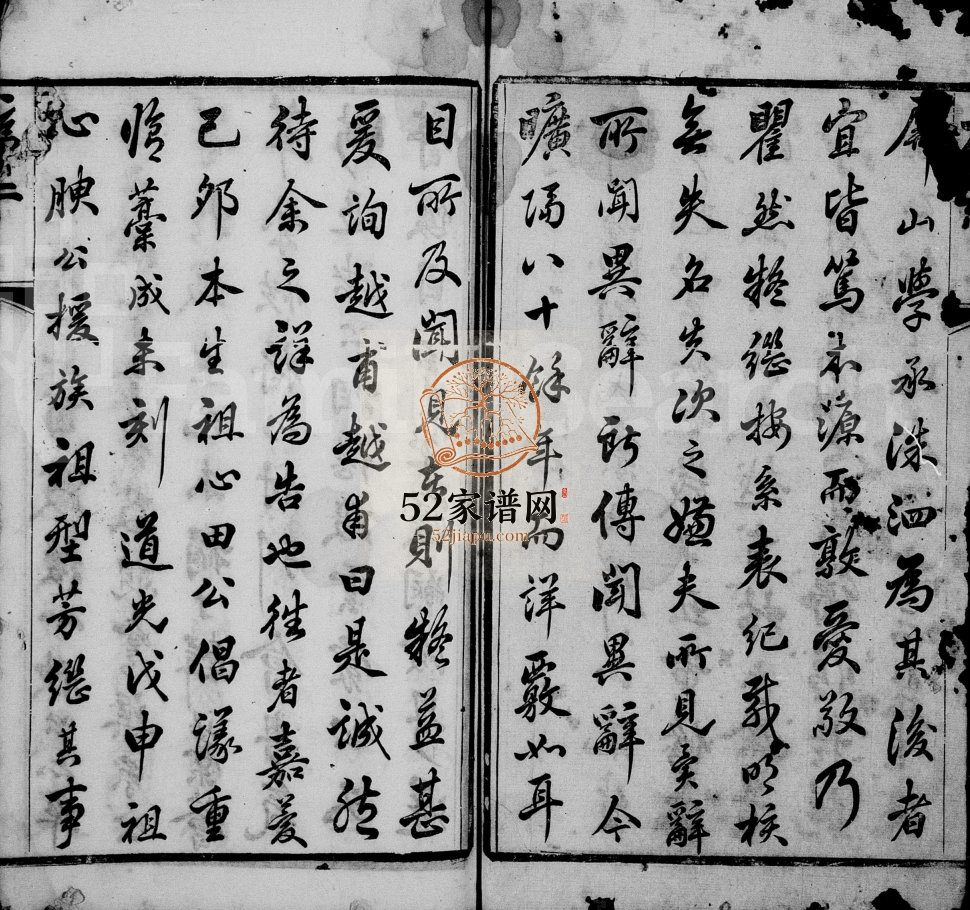 屏山學承洙泗為其後者
宜皆篤本源而敦愛敬乃
瞿然疑繼按系表紀載明核
無失名失次之嫌夫所見異辭
所聞異辭所傳聞異辭今
曠隔八十餘年而詳覈如耳
目所及聞見專則疑益甚
爰詢越甫越甫曰是誠然
待余之詳為告也往者嘉慶
己卯本生祖心田公倡議重
脩藁成未刻道光戊申祖
心腴公援族祖型芳繼其事
序
二
52家谱网
52jiapu.com